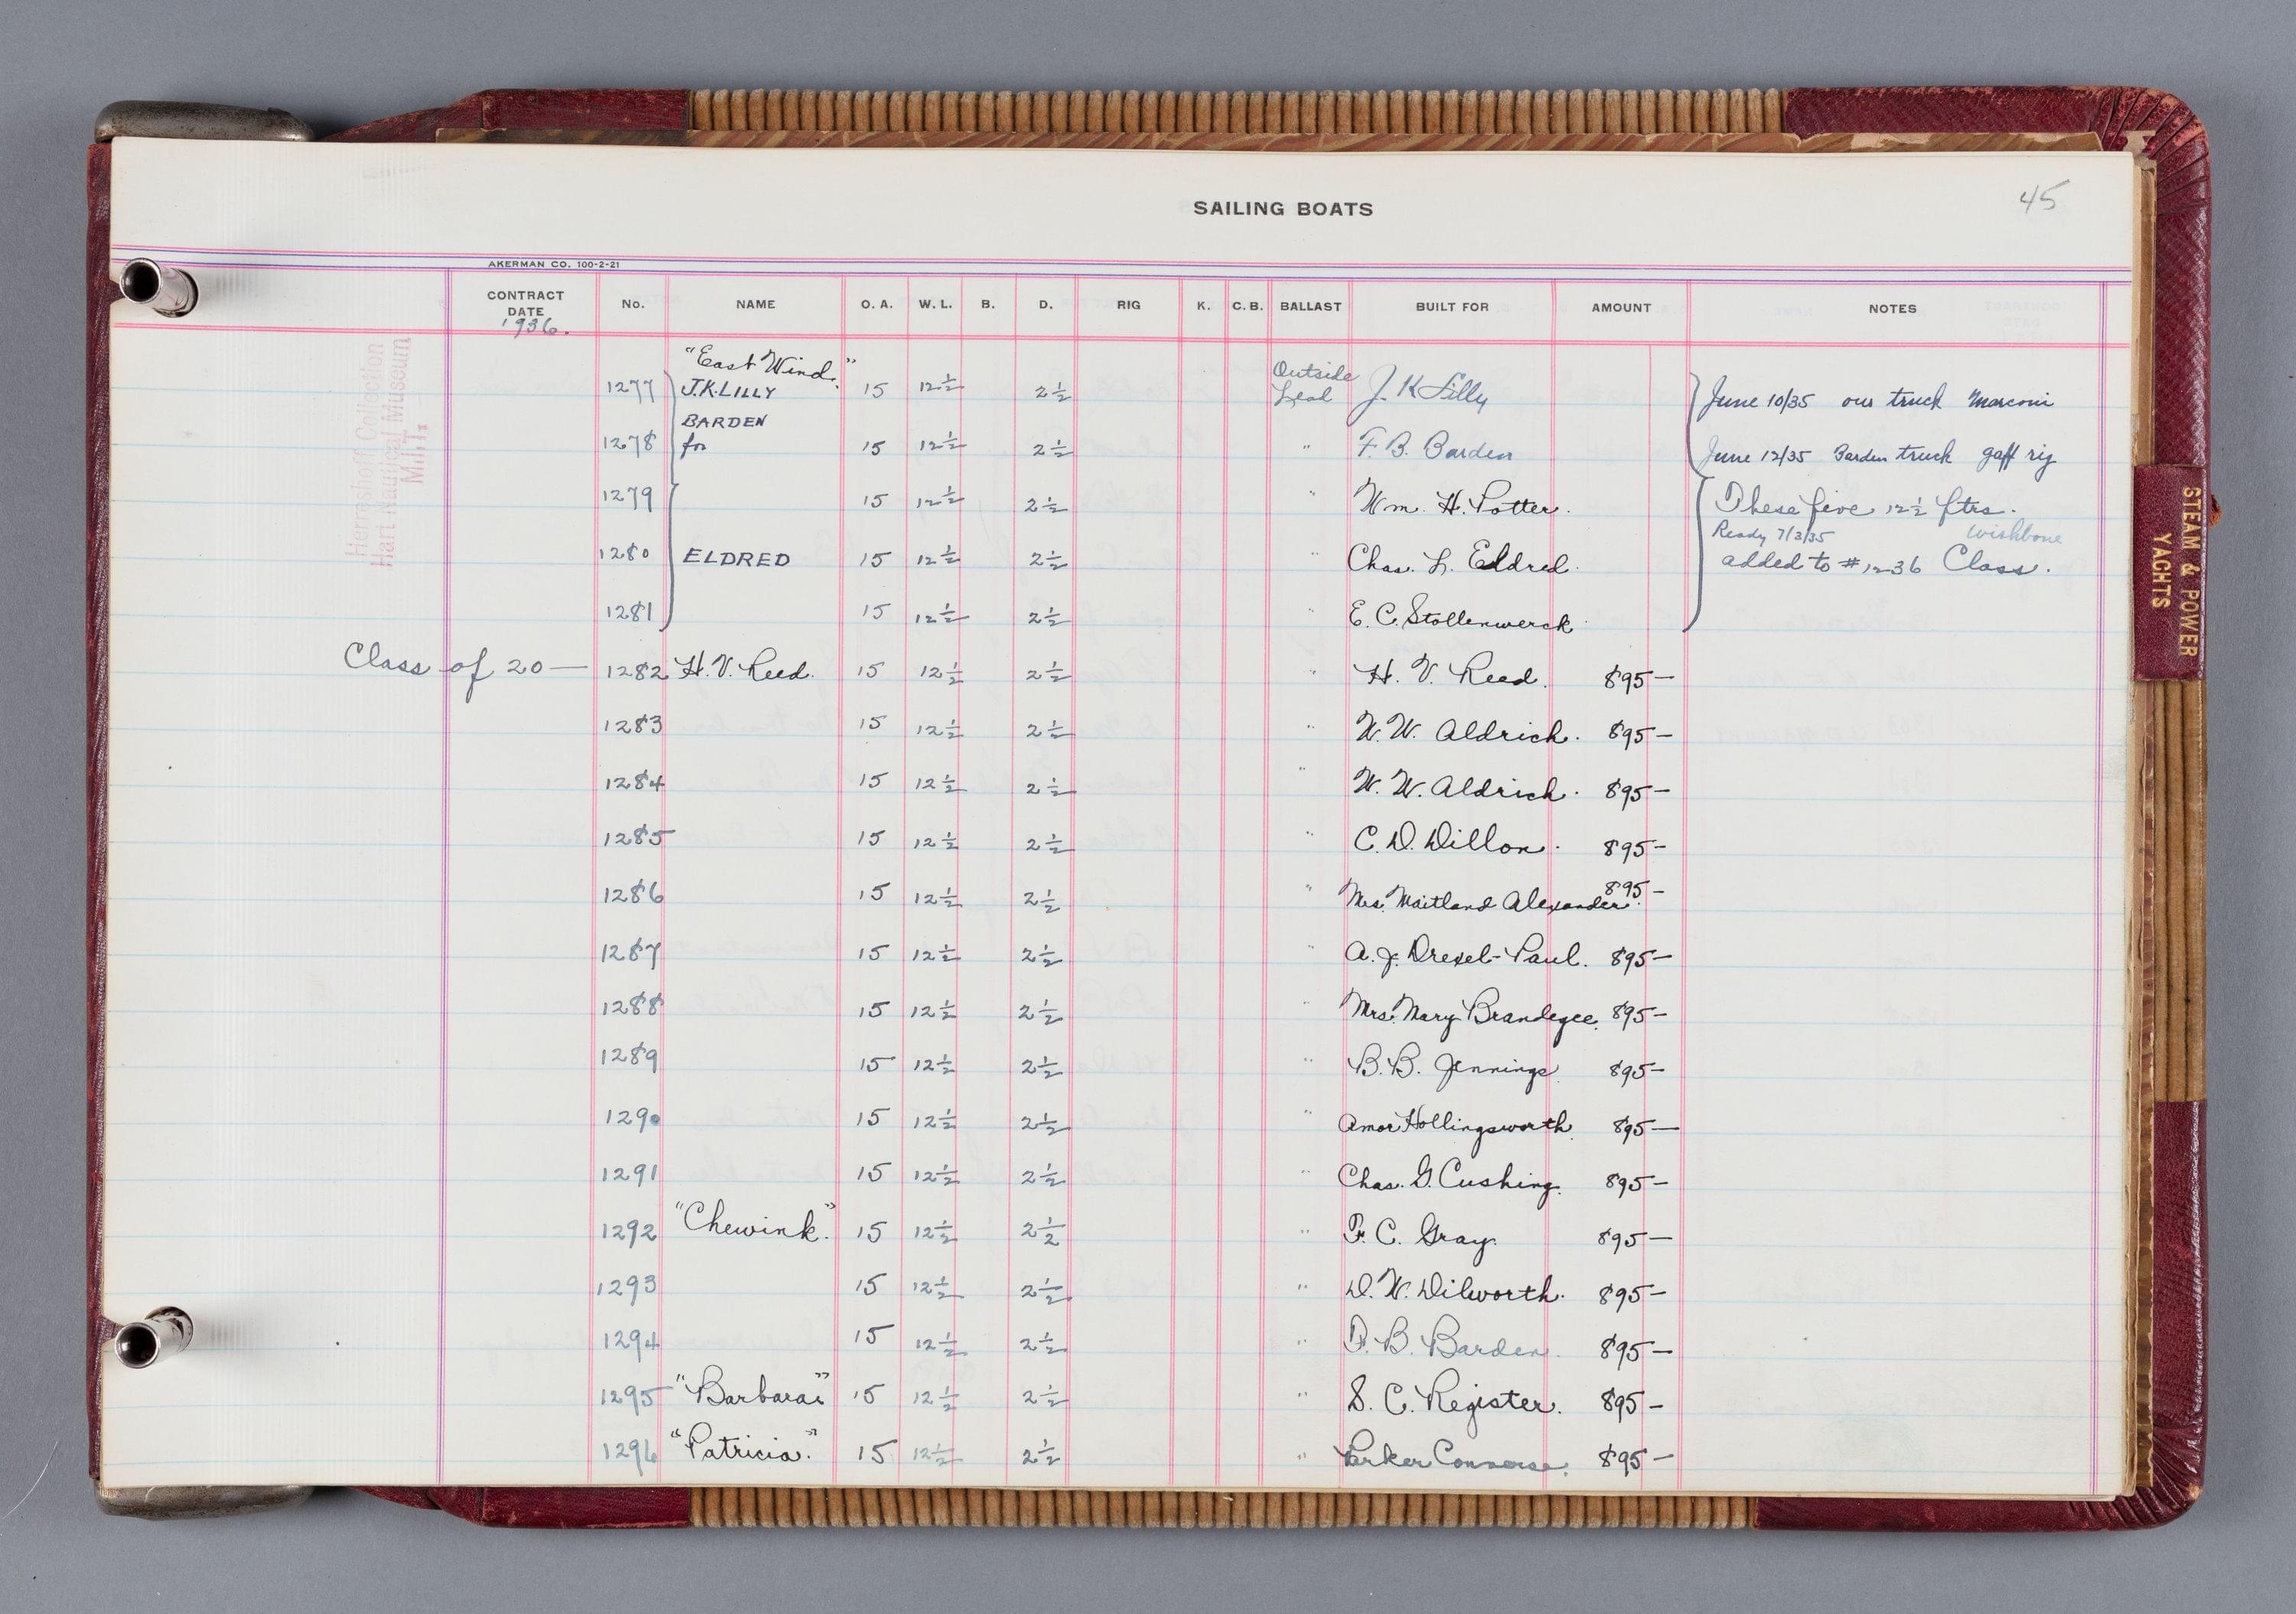 SAILING BOATS
45
AKERMAN CO. 100-2-21
CONTRACT DATE No. NAME O. A. W. L. B. D. RIG K. C. B. BALLAST BUILT FOR AMOUNT NOTES
1936.
"East Wind."
1277 J.K. LILLY 15 12½ 2½ Outside Lead J. K Lilly June 10/35 our truck Marconi
BARDEN
1278 for 15 12½ 2½ " F. B. Barden June 12/35 Barden truck gaff rig
1279 15 12½ 2½ " Wm. H. Potter. These five 12½ ftrs.
Ready 7/3/35 wishbone
1280 ELDRED 15 12½ 2½ " Chas. L. Eldred. added to #1236 Class.
1281 15 12½ 2½ " E. C. Stollenwerck
Class of 20 — 1282 H. V. Reed. 15 12½ 2½ " H. V. Reed. 895—
1283 15 12½ 2½ " W. W. Aldrich. 895—
1284 15 12½ 2½ " W. W. Aldrich. 895—
1285 15 12½ 2½ " C. D. Dillon. 895—
1286 15 12½ 2½ " Mrs. Maitland Alexander. 895—
1287 15 12½ 2½ " A. J. Drexel-Paul. 895—
1288 15 12½ 2½ " Mrs. Mary Brandegee. 895—
1289 15 12½ 2½ " B. B. Jennings. 895—
1290 15 12½ 2½ " Amor Hollingsworth. 895—
1291 15 12½ 2½ " Chas. G. Cushing. 895—
1292 "Chewink." 15 12½ 2½ " F. C. Gray. 895—
1293 15 12½ 2½ " D. W. Dilworth. 895—
1294 15 12½ 2½ " F. B. Barden. 895—
1295 "Barbara." 15 12½ 2½ " S. C. Register. 895—
1296 "Patricia." 15 12½ 2½ " Parker Converse. 895—
Herreshoff Collection
Hart Nautical Museum
M.I.T.
STEAM & POWER
YACHTS